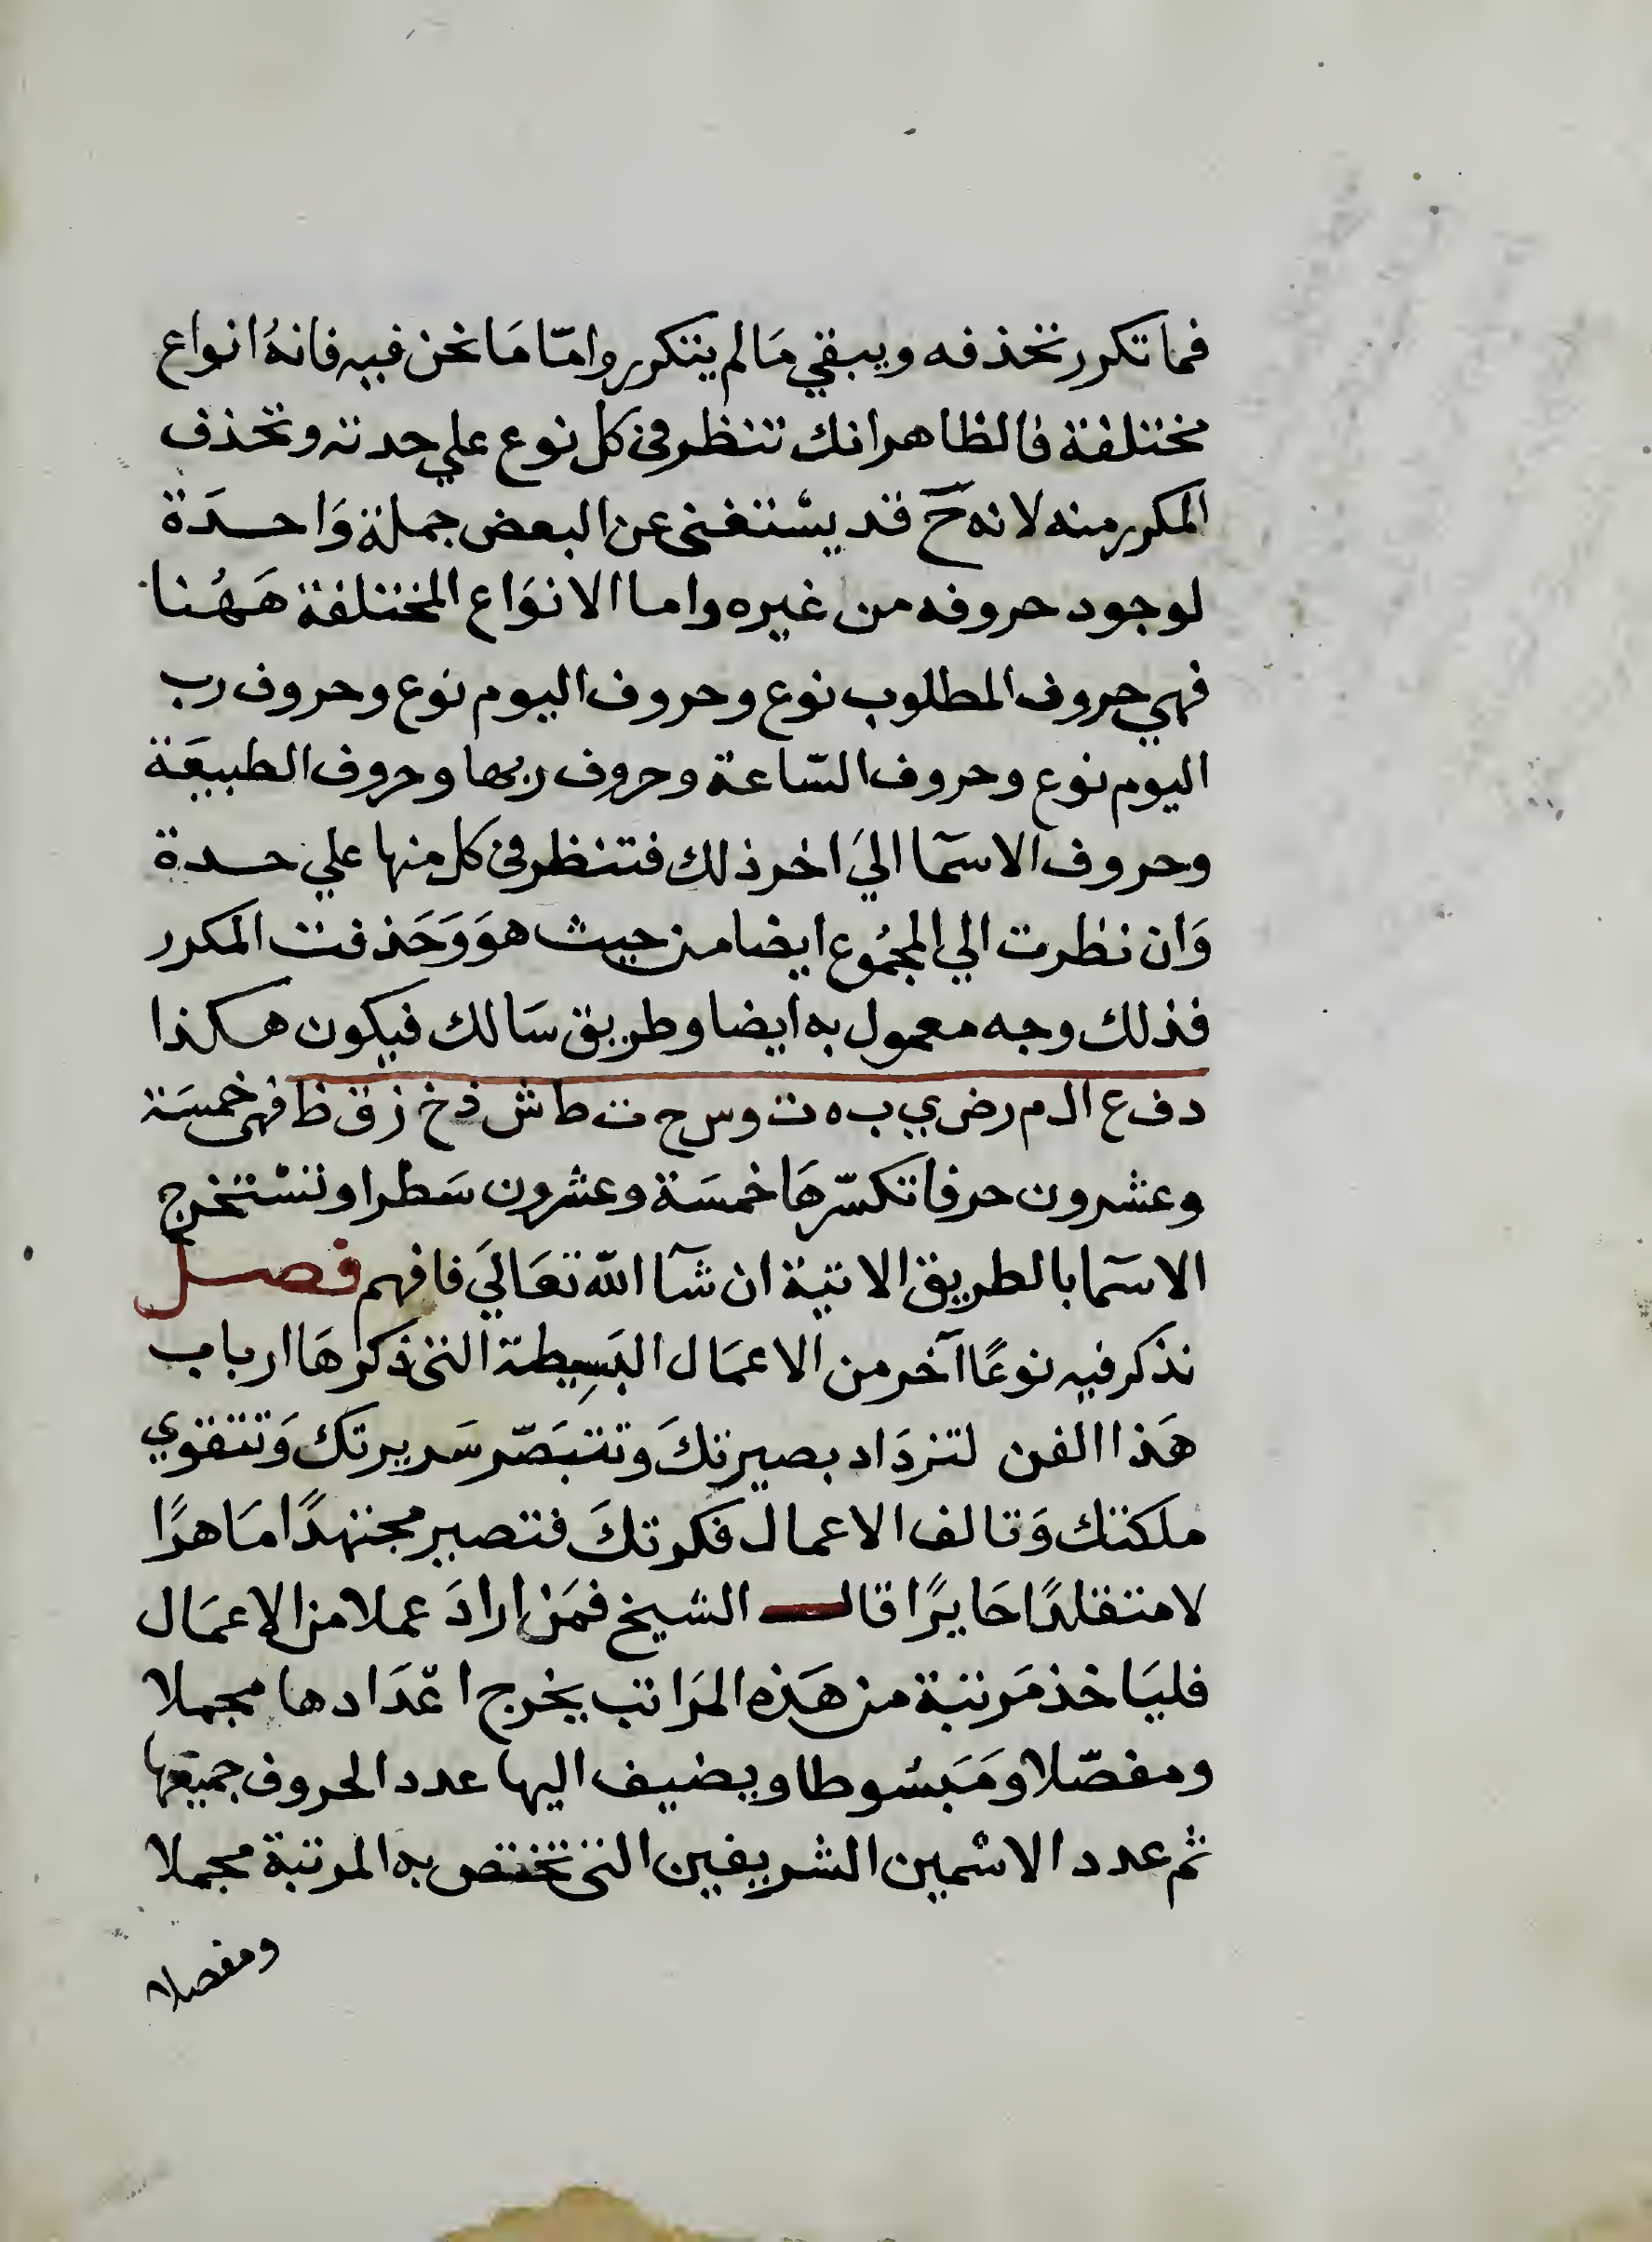 فما تكرر تحذفه ويبقي مَا لم يتكرر وامّا مَا نحن فيه فانهُ انواع
مختلفة فالظاهر انك تنظر في كل نوع علي حدته وتحذف
المكرر منه لانه حَ قد يسْتغني عن البعض جملة وَاحدَة
لوجود حروفه من غيره واما الانوَاع المختلفة هَهُنا
فهي حروف المطلوب نوع وحروف اليوم نوع وحروف رب
اليوم نوع وحروف السّاعة وحروف ربها وحروف الطبيعَة
وحروف الاسمآ اليَ اخر ذلك فتنظر في كل منها علي حدة
وَان نظرت الي المجمُوع ايضا من حيث هوَ وَحَذفت المكرر
فذلك وجه معمول به ايضا وطريق سَالك فيكون هكذا
د ف ع ا ل م ر ض ي ب ه ن و س ح ت ط ش ذ خ ز ق ظ فهي خمسَة
وعشرون حرفا تكسّرهَا خمسَة وعشرون سَطرا وتسْتخرج
الاسمآ بالطريق الاتية ان شآ اللّه تعَاليَ فافهم فصل
نذكر فيه نوعًا آخر من الاعمَال البَسِيطة التي ذكرهَا ارباب
هَذا الفن لتزدَاد بصيرتكَ وتتبَصّر سَريرتك وَتتقوي
ملكتك وَتالف الاعمال فكرتكَ فتصير مجتهدًا مَاهرًا
لا متقلدًا حَايرًا قال الشيخ فمَن ارادَ عملا من الاعمَال
فليَاخذ مَرتبة من هَذه المرَاتب يخرج اعْدَادها مجملا
ومفصّلا ومَبسُوطا ويضيف اليها عدد الحروف جميعَها
ثم عدد الاسْمين الشريفين التي تختص به المرتبة مجملا
ومفصلا